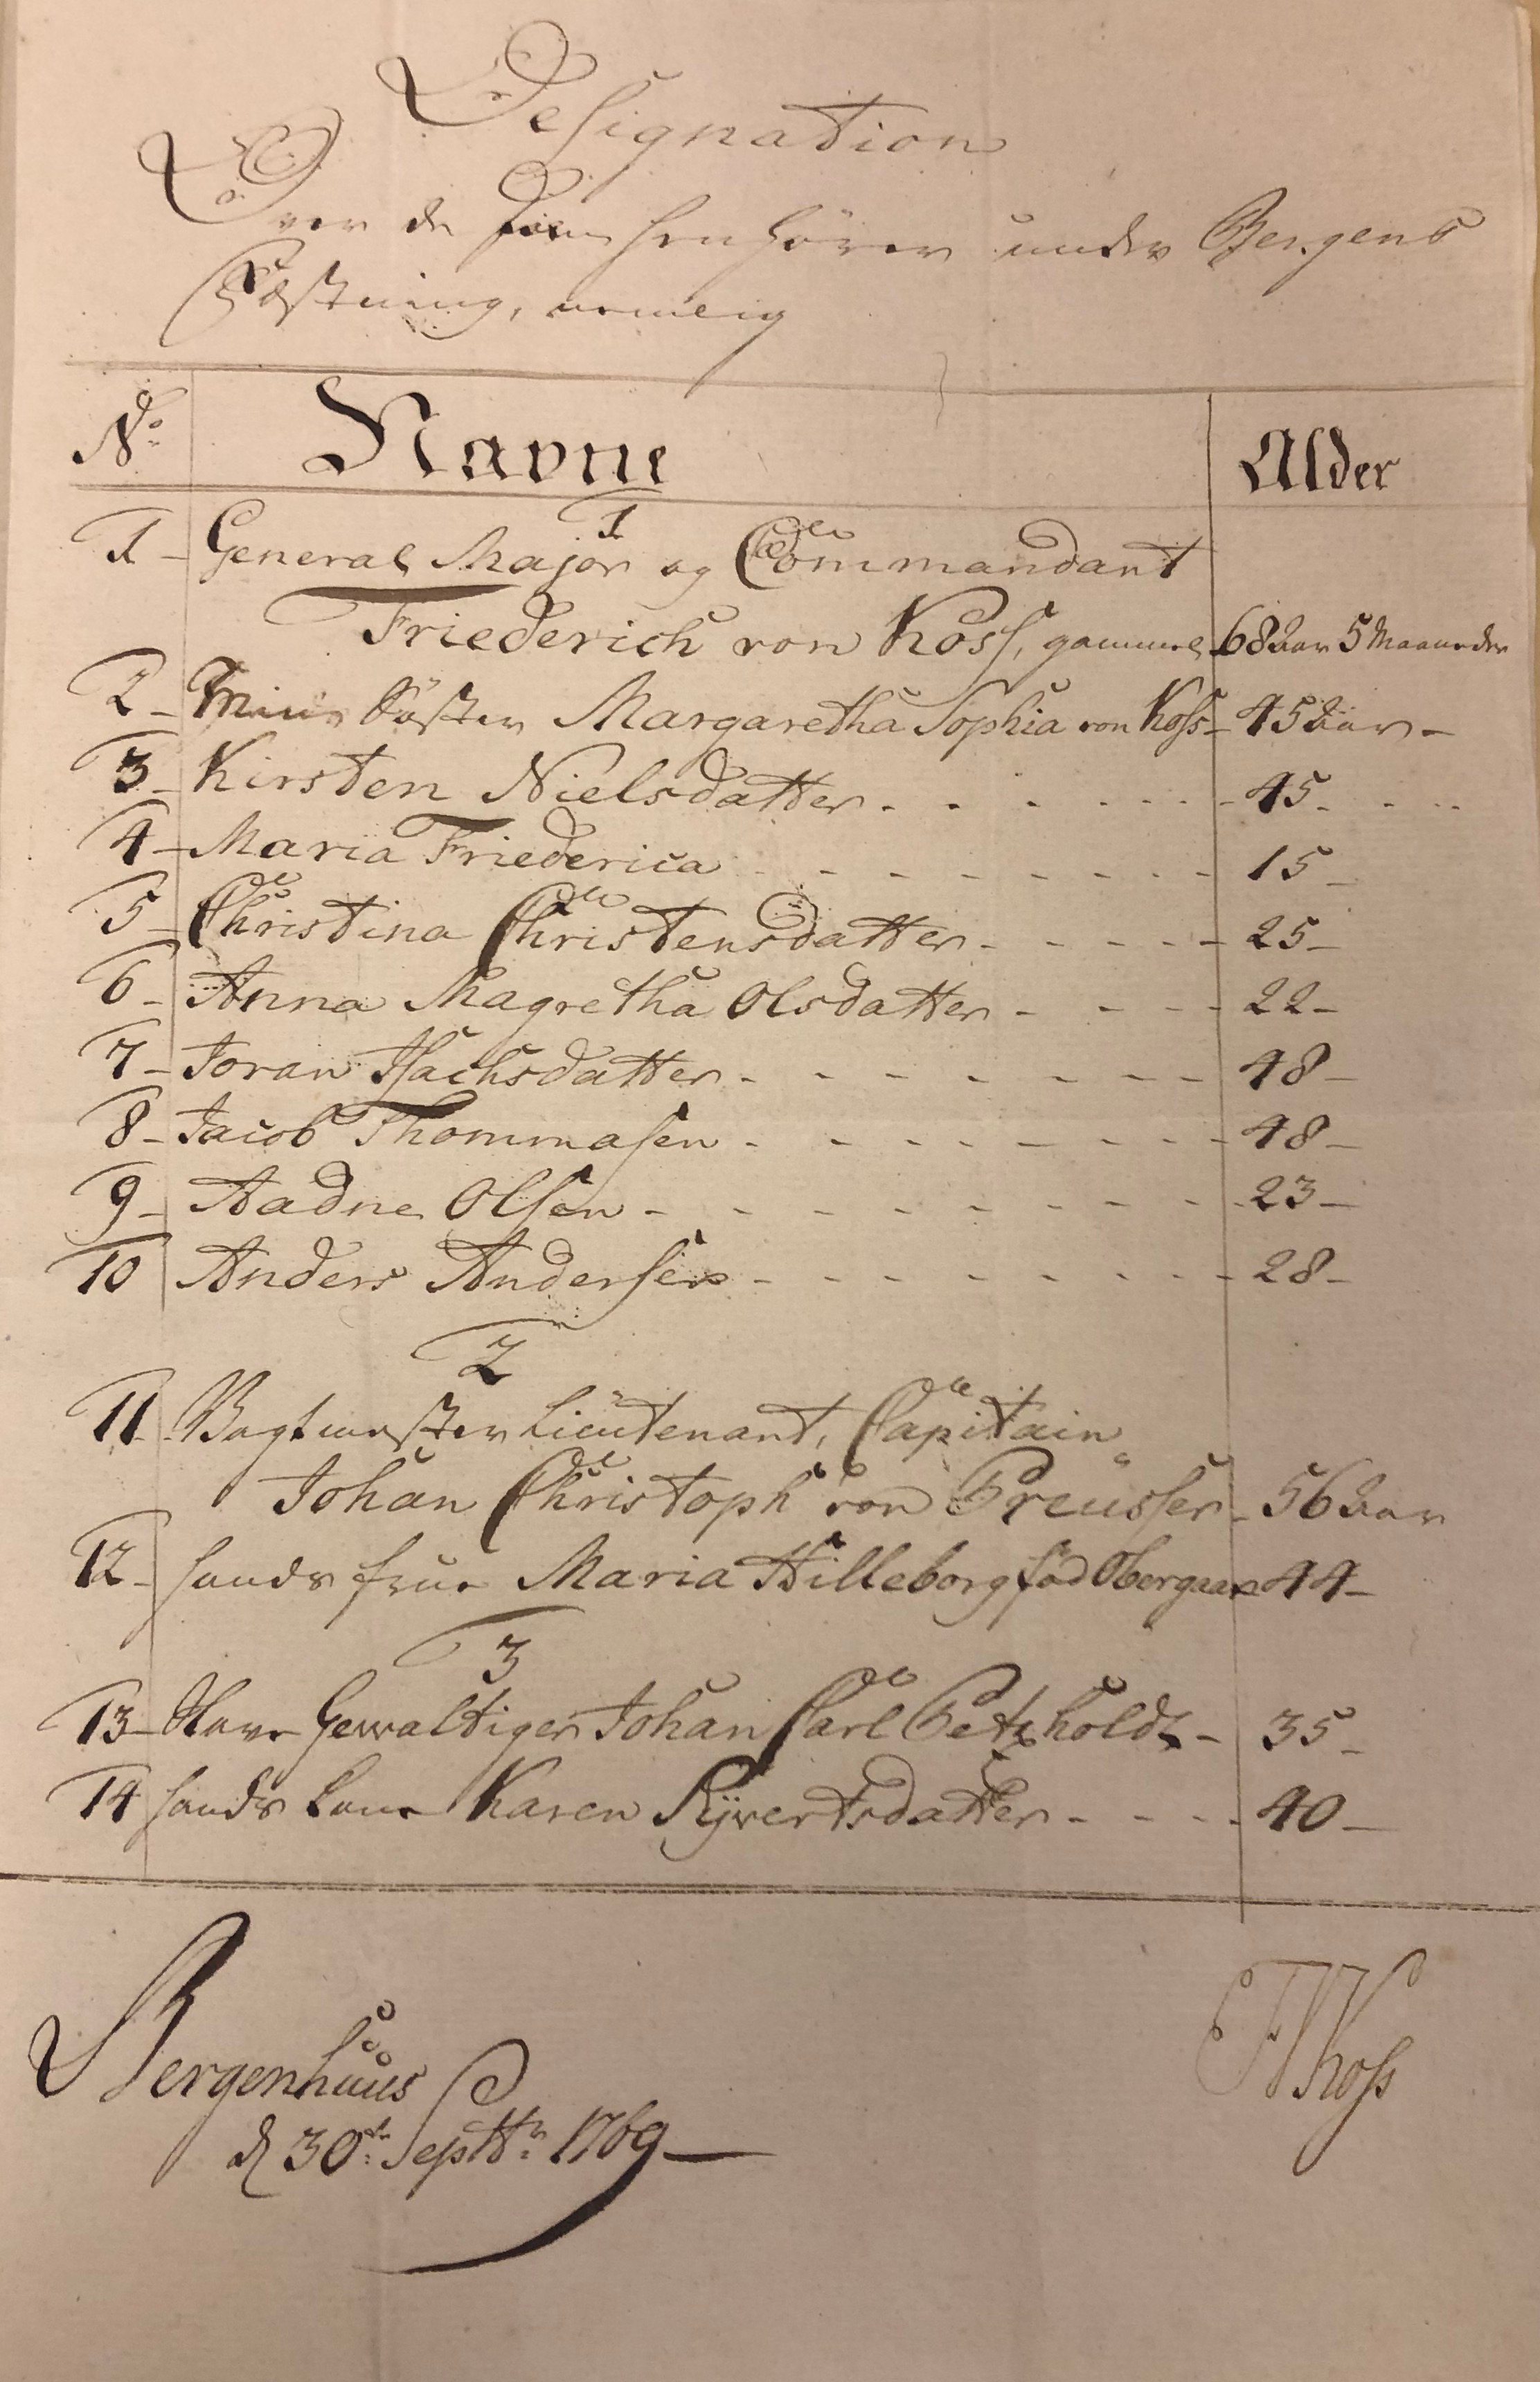 Designation
Over de som henhörer under Bergens
Fæstning, nemlig
No Navne Alder
1
1 - General Major og Commandant
Friederich von Koss, gammel 68 Aar 5 Maaneder
2 - Min Söster Margaretha Sophia von Koss - 45 Aar -
3 - Kirsten Nielsdatter - 45 -
4 - Maria Friederica - 15 -
5 - Christina Christensdatter - 25 -
6 - Anna Magretha Olsdatter - 22 -
7 - Joran Isachsdatter - 48 -
8 - Jacob Thommasen - 48 -
9 - Aadne Olsen - 23 -
10 Anders Andersen - 28 -
2
11 - Vagtmester Lieutenant, Capitain
Johan Christoph von Preusser - 56 Aar
12 - hands frue Maria Hilleborg föd 44 -
3
13 - Gewaltiger Johan Carl Petzholdt - 35 -
14 hands Kone Karen Syvertsdatter - 40 -
Bergenhuus
d 30te Septbr 1769
FVKoss